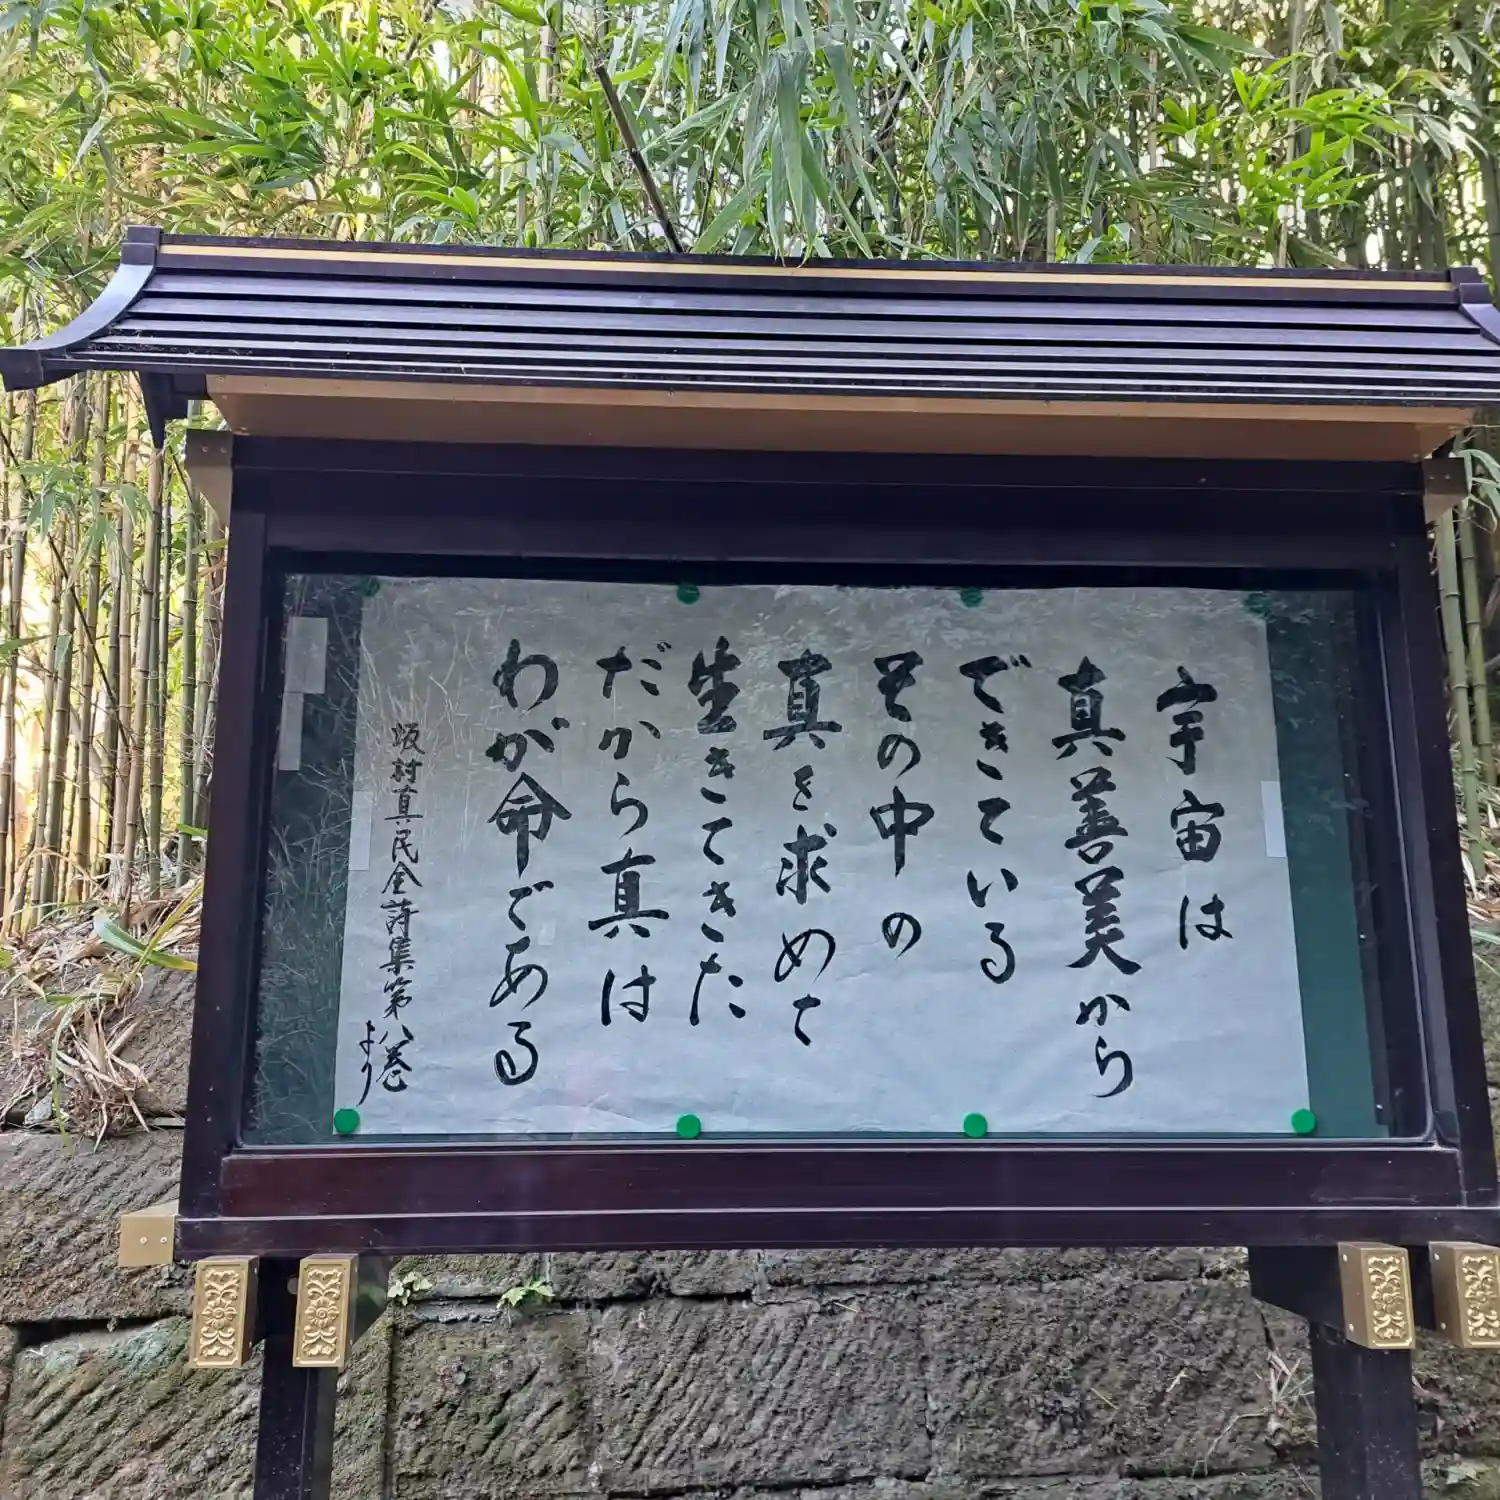 宇宙は
真善美から
できている
その中の
真を求めて
生きてきた
だから真は
わが命である
坂村真民全詩集第八巻
より